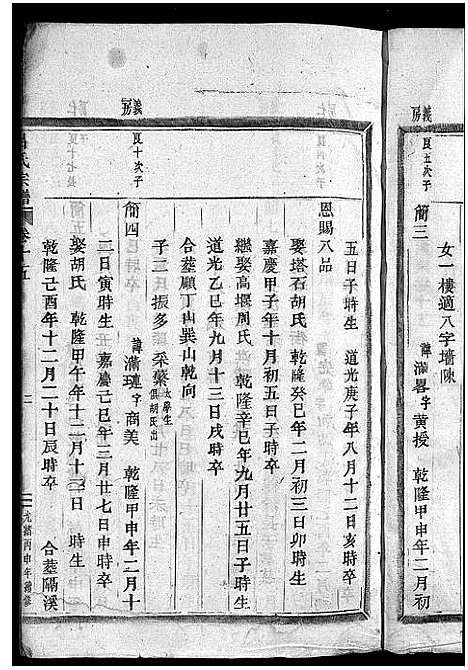 義房
良五次子
簡三
女一樓適八字墻陳
諱滿畧字黃授 乾隆甲申年二月初
五日子時生 道光庚子年八月十二日亥時卒
恩賜八品
娶塔石胡氏 乾隆癸巳年二月初三日卯時生
嘉慶甲子年十月初五日子時卒
繼娶高堰周氏 乾隆辛巳年九月廿五日子時生
道光乙巳年九月十三日戌時卒
合葬顧丁山巽山乾向
子二 振多 采繁 太學生 俱胡氏出
義房
良十次子
簡四 諱滿璉字商美 乾隆甲申年二月十
二日寅時生 嘉慶己巳年三月廿七日申時卒
娶胡氏 乾隆甲午年十二月十二日 時生
乾隆己酉年十二月二十日辰時卒 合葬隔溪
氏宗譜 卷十五
二
光緒丙申年續修